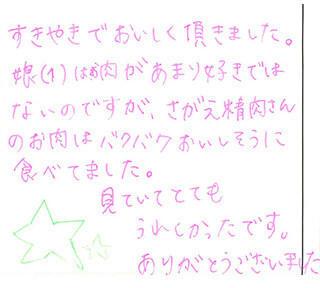 すきやきでおいしく頂きました。
娘(1)はお肉があまり好きでは
ないのですが、さがえ精肉さん
のお肉はバクバクおいしそうに
食べてました。
見ていてとても
うれしかったです。
ありがとうございました